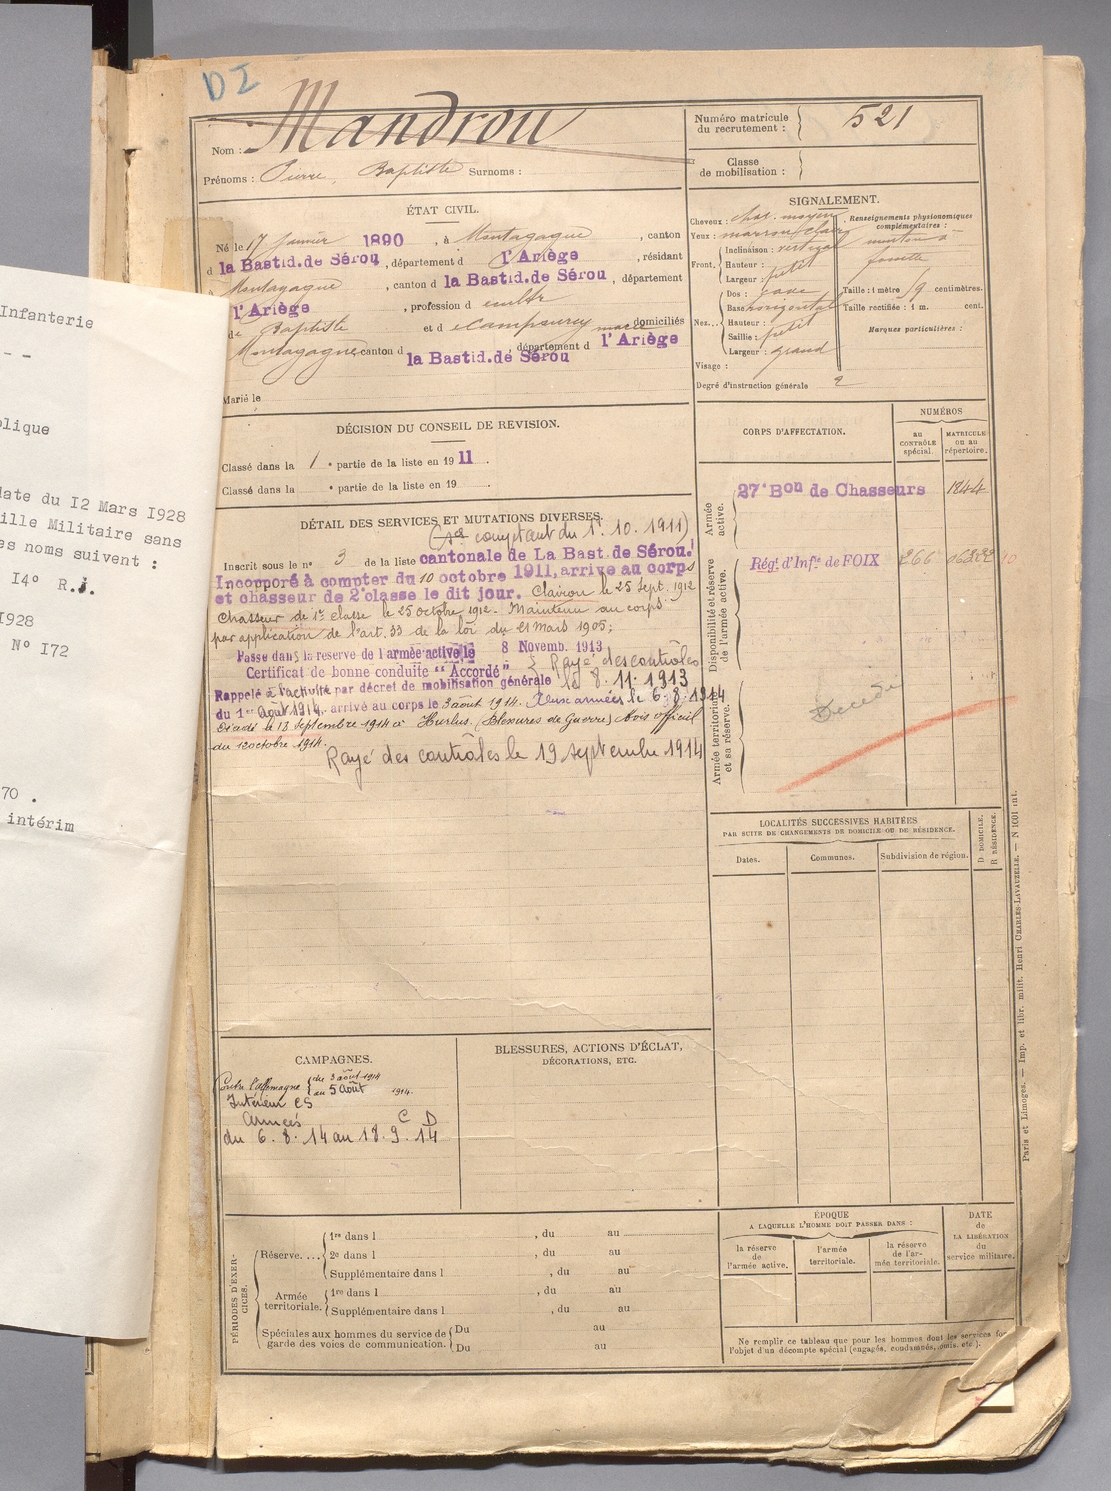 Infanterie
- -
olique
date du I2 Mars I928
ille Militaire sans
es noms suivent :
I4° R.I.
I928
N° I72
70 .
intérim
D I
Nom : Mandrou
Prénoms : Pierre, Baptiste Surnoms :
Numéro matricule du recrutement : 521
Classe de mobilisation :
ÉTAT CIVIL.
Né le 17 Janvier 1890, à Montagagne, canton
d la Bastid.de Sérou, département d l'Ariège, résidant
à Montagagne, canton d la Bastid.de Sérou, département
l'Ariège, profession de cultr
de Baptiste et d domiciliés
Montagagne canton d la Bastid.de Sérou, département d l'Ariège
Marié le
SIGNALEMENT.
Cheveux : chat. moyen
Yeux : marron clair
Front. Inclinaison : vertical
Hauteur :
Largeur : petit
Nez... Dos : cave
Base horizontal
Hauteur :
Saillie : petit
Largeur : grand
Renseignements physionomiques complémentaires :
menton à
Taille : 1 mètre centimètres.
Taille rectifiée : 1 m. cent.
Marques particulières :
Visage :
Degré d'instruction générale 2
DÉCISION DU CONSEIL DE REVISION.
Classé dans la 1 e partie de la liste en 1911.
Classé dans la e partie de la liste en 19 .
DÉTAIL DES SERVICES ET MUTATIONS DIVERSES.
comptant du 1er. 10. 1911)
Inscrit sous le n° 3 de la liste cantonale de La Bast.de Sérou.
Incorporé à compter du 10 octobre 1911, arrive au corps
et chasseur de 2e classe le dit jour. Clairon le 25 Sept. 1912
Chasseur de 1re classe le 25 octobre 1912. Maintenu au corps
par application de l'art. 33 de la loi du 21 mars 1905;
Passé dans la reserve de l'armée active le 8 Novemb. 1913
Certificat de bonne conduite "Accordé" Rayé des contrôles
le 8. 11. 1913
Rappelé à l'activité par décret de mobilisation générale
du 1er Août 1914. arrivé au corps le 3 août 1914. Aux armées le 6.8.1914
septembre 1914 à Hurlus, (Blessures de Guerre) Avis officiel
du 12 octobre 1914.
Rayé des contrôles le 19 septembre 1914
CORPS D'AFFECTATION.
NUMÉROS
au CONTRÔLE spécial.
MATRICULE ou au répertoire.
Armée active.
27e Bon de Chasseurs 1844
Disponibilité et réserve de l'armée active.
Rég. d'Infie de FOIX 266
Armée territoriale et sa réserve.
Décédé
LOCALITÉS SUCCESSIVES HABITÉES
PAR SUITE DE CHANGEMENTS DE DOMICILE OU DE RÉSIDENCE.
Dates.
Communes.
Subdivision de région.
D. DOMICILE.
R. RÉSIDENCE.
CAMPAGNES.
Contre l'Allemagne du 3 août 1914
au 5 Août 1914.
Intérieur CS
Armées C D
du 6. 8. 14 au 18. 9. 14
BLESSURES, ACTIONS D'ÉCLAT,
DÉCORATIONS, ETC.
PÉRIODES D'EXERCICES.
Réserve.... 1re dans l , du au
2e dans l , du au
Supplémentaire dans l , du au
Armée territoriale. 1re dans l , du au
Supplémentaire dans l , du au
Spéciales aux hommes du service de garde des voies de communication. Du au
Du au
ÉPOQUE
A LAQUELLE L'HOMME DOIT PASSER DANS :
la réserve de l'armée active.
l'armée territoriale.
la réserve de l'armée territoriale.
DATE
de
LA LIBÉRATION
du
service militaire.
Ne remplir ce tableau que pour les hommes dont les services font
l'objet d'un décompte spécial (engagés, condamnés, omis, etc.).
Paris et Limoges. — Imp. et libr. milit. Henri CHARLES-LAVAUZELLE. — N 1601 int.